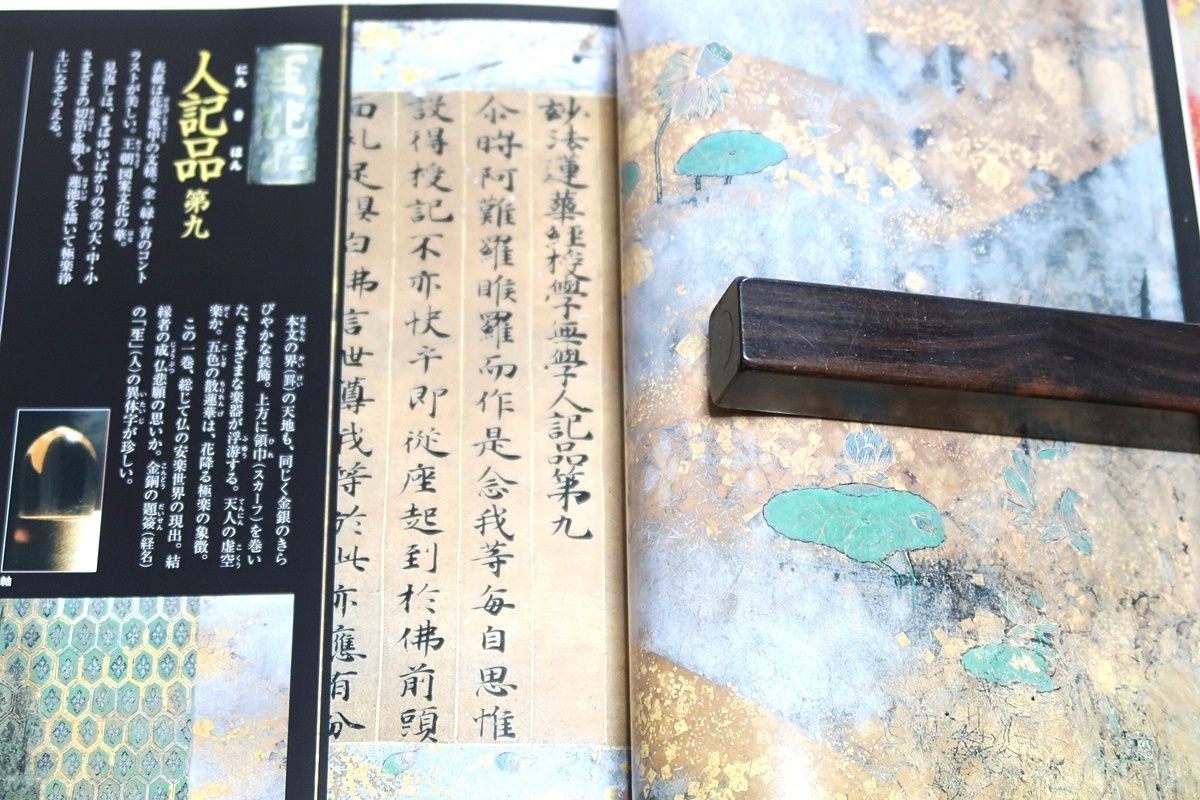 妙法蓮華經授學無學人記品第九
尒時阿難羅睺羅而作是念我等每自思惟
設得授記不亦快乎即從座起到於佛前頭
面礼足俱白佛言世尊我等於此亦應有分
にんきほん
人記品 第九
表紙は花菱亀甲の文様。金・緑・青のコント
ラストが美しい。王朝図案文化の華。
見返しは、まばゆいばかりの金の大・中・小
さまざまの切箔を撒く。蓮池を描いて極楽浄
土になぞらえる。
本文の界(罫)の天地も、同じく金銀のきら
びやかな装飾。上方に領巾(スカーフ)を巻い
た、さまざまな楽器が浮游する。天人の虚空
楽か。五色の散蓮華は、花降る極楽の象徴。
この一巻、総じて仏の安楽世界の現出。結
縁者の成仏悲願の思いか。金銅の題簽(経名)
の「𤯔」(人)の異体字が珍しい。
軸